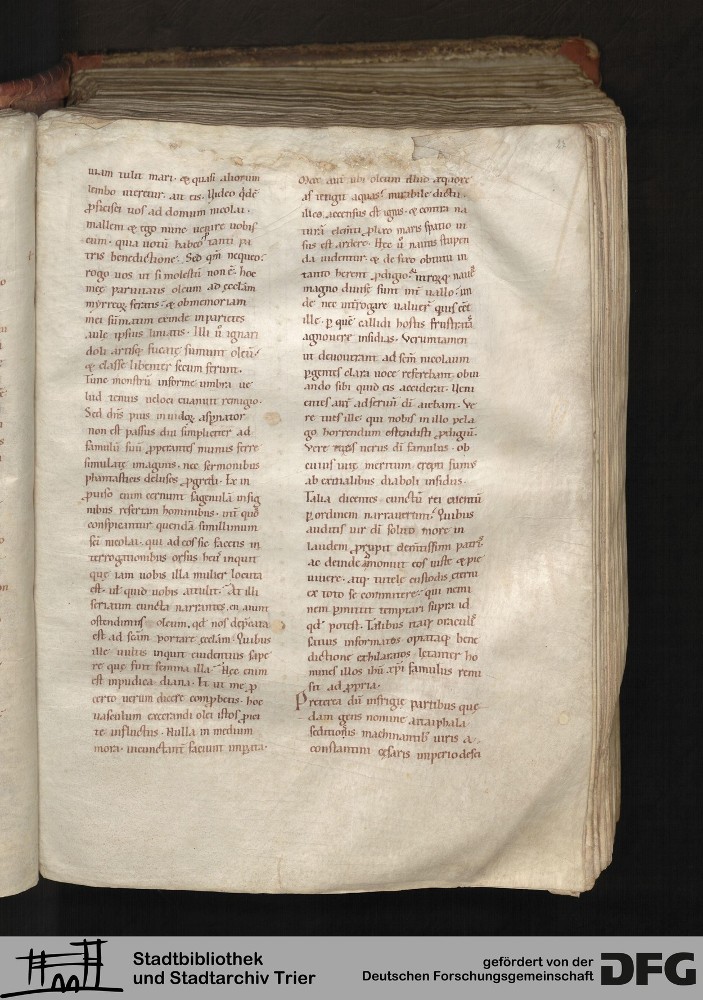 uiam tulit mari· & quasi aliorum
limbo uteretur· ait eis· Video qđē
ꝓficisci uos ad domum nicolai·
mallem & ego nunc uenire uobis
cum· quia uotū habeo tanti pa
tris benedictione· Sed qm̄ nequeo·
rogo uos ut si molestū non ē· hoc
meę paruitatis oleum ad ęcclām
myrreaę feratis· & ob memoriam
mei sumatum exinde in parietes
aulę ipsius liniatis· Illi ū ignari
doli artisq; fucatę sumunt oleū·
& classe libenter secum ferunt·
Tunc monstrū informe umbra ue
lud tenuis ueloci euanuit remigio·
Sed dn̄s pius inuidoꝝ aspnator
non est passus diu simpliciter ad
famulū suū ꝓperantes munus ferre
simulatę imaginis· nec sermonibus
phantasticis delusos ꝓgredi· Ex in
ꝓuiso enim cernunt sagenulā insig
nibus refertam hominibus· int̄ quos
conspicantur quendā simillimum
scī nicolai· qui ad eos sic facetis in
terrogationibus orsus heu inquit
quę iam uobis illa mulier locuta
est· ul' quid uobis attulit· At illi
seriatim cuncta narrantes· en aiunt
ostendimus oleum· qđ nos depcata
est ad scām portare ęcclām· Quibus
ille uultis inquit euidentius sape
re quę fuit femina illa· Hęc enim
est impudica diana· Et ut me ꝓ
certo uerum dicere comꝓbetis· hoc
uasculum execrandi olei istos ꝓici
te in fluctus· Nulla in medium
mora· incunctant̄ faciunt impata·
Mox aut̄ ubi oleum illud ęquore
as tetigit aquas· mirabile dictu·
ilico accensus est ignis· & contra na
turā elem̄ti ꝓlixo maris spatio ui
sus est ardere· Hęc ū nautis stupen
da uidentur· & de sero obtutu in
tanto herent ꝓdigio· utręq; nauē
magno diuisę sunt int̄ uallo· un
de nec int̄rogare ualuert̄ quis eēt
ille· ꝑ quē callidi hostis frustratā
agnouere insidias· Verumtamen
ut deuouerant ad scm̄ nicolaum
ꝑgentes clara uoce referebant obui
ando sibi quid eis acciderat· Ueni
entes aut̄ ad seruū dī aiebant· Ve
re tu es ille· qui nobis in illo pela
go horrendum ostendisti ꝓdigiū·
Vere uerus dī famulus· ob
cuius uitę meritum erepti sum'
ab exitialibus diaboli insidiis·
Talia dicentes cunctā rei euentū
ꝑ ordinem narrauerunt· Quibus
auditis uir dī solito more in
laudem ꝓrupit clem̄tissimi patris·
ac deinde āmonuit eos iuste & pie
uiuere· atq; tutelę custodis ęterni
ex toto se committere· qui nemi
nem ꝑmittit temptari supra id
qđ potest· Talibus itaq; oraculis
satius informatos optataq; bene
dictione exhilaratos· lętanter ho
mines illos ihū xp̄i famulus remi
sit ad ꝓpria·
Preterea dū in frigię partibus quę
dam gens nomine attaiphala
seditionis machinantib' uiris a
constantini cęsaris imperio desci
Stadtbibliothek
und Stadtarchiv Trier
gefördert von der
Deutschen Forschungsgemeinschaft
DFG